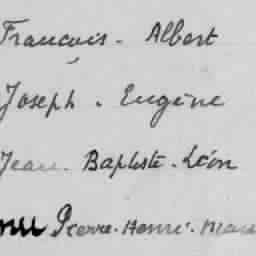 François - Albert
Joseph - Eugène
Jean - Baptiste - Léon
Pierre - Henri -